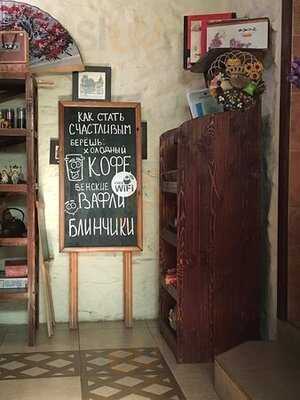 КАК СТАТЬ
СЧАСТЛИВЫМ
БЕРЕШЬ:
ХОЛОДНЫЙ
КОФЕ
WiFi
ВЕНСКИЕ
ВАФЛИ
БЛИНЧИКИ